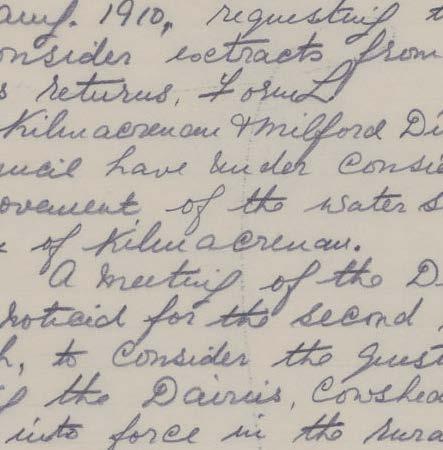 Jany. 1910, requesting t
onsider extracts from
s returns, Form L.
Kilmacrenan & Milford Di
uncil have under consid
ovement of the water s
of Kilmacrenan.
A meeting of the D
noticed for the second
h, to consider the quest
g the Dairies, Cowshed
into force in the rura